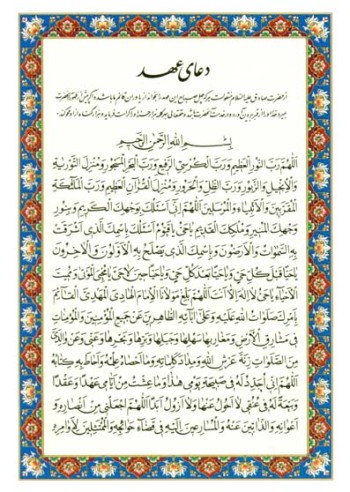 دعای عهد
از حضرت صادق علیه السلام منقولست که هر که چهل صباح این عهد را بخواند از یاوران قائم ما باشد و اگر پیش از ظهور آنحضرت
بمیرد خدا او را از قبر بیرون آورد که در خدمت آنحضرت باشد و حقتعالی بهر کلمه هزار حسنه او را کرامت فرماید و هزار گناه از او محو کند
بِسْمِ اللهِ الرَّحْمنِ الرَّحیمِ
اَللّهُمَّ رَبَّ النُّورِ الْعَظیمِ وَرَبَّ الْكُرْسِیِّ الرَّفیعِ وَرَبَّ الْبَحْرِ الْمَسْجُورِ وَمُنْزِلَ التَّوْریةِ
وَالْاِنْجیلِ وَالزَّبُورِ وَرَبَّ الظِّلِّ وَالْحَرُورِ وَمُنْزِلَ الْقُرْآنِ الْعَظیمِ وَرَبَّ الْمَلآئِكَةِ
الْمُقَرَّبینَ وَالْاَنْبِیآءِ وَالْمُرْسَلینَ اَللّهُمَّ اِنّی اَسْئَلُكَ بِوَجْهِكَ الْكَریمِ وَبِنُورِ
وَجْهِكَ الْمُنیرِ وَمُلْكِكَ الْقَدیمِ یا حَیُّ یا قَیُّومُ اَسْئَلُكَ بِاسْمِكَ الَّذی اَشْرَقَتْ
بِهِ السَّمواتُ وَالْاَرَضُونَ وَبِاسْمِكَ الَّذی یَصْلَحُ بِهِ الْاَوَّلُونَ وَالْاخِرُونَ
یا حَیّاً قَبْلَ كُلِّ حَیٍّ وَیا حَیّاً بَعْدَ كُلِّ حَیٍّ وَیا حَیّاً حینَ لا حَیَّ یا مُحْیِیَ الْمَوْتى وَمُمیتَ
الْاَحْیآءِ یا حَیُّ لا اِلهَ اِلاّ اَنْتَ اَللّهُمَّ بَلِّغْ مَوْلانَا الْاِمامَ الْهادِیَ الْمَهْدِیَّ الْقآئِمَ
بِاَمْرِكَ صَلَواتُ اللهِ عَلَیْهِ وَعَلى آبآئِهِ الطّاهِرینَ عَنْ جَمیعِ الْمُؤْمِنینَ وَالْمُؤْمِناتِ
فی مَشارِقِ الْاَرْضِ وَمَغارِبِها سَهْلِها وَجَبَلِها وَبَرِّها وَبَحْرِها وَعَنّی وَعَنْ والِدَیَّ
مِنَ الصَّلَواتِ زِنَةَ عَرْشِ اللهِ وَمِدادَ كَلِماتِهِ وَما اَحْصاهُ عِلْمُهُ وَاَحاطَ بِهِ كِتابُهُ
اَللّهُمَّ اِنّی اُجَدِّدُ لَهُ فی صَبیحَةِ یَوْمی هذا وَما عِشْتُ مِنْ اَیّامی عَهْداً وَعَقْداً
وَبَیْعَةً لَهُ فی عُنُقی لا اَحُولُ عَنْها وَلا اَزُولُ اَبَداً اَللّهُمَّ اجْعَلْنی مِنْ اَنْصارِهِ وَ
اَعْوانِهِ وَالذّابّینَ عَنْهُ وَالْمُسارِعینَ اِلَیْهِ فی قَضآءِ حَوآئِجِهِ وَالْمُمْتَثِلینَ لِاَوامِرِهِ